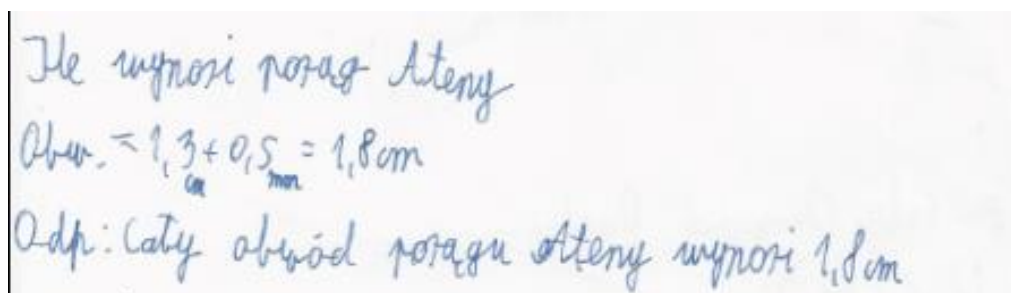 Ile wynosi posąg Ateny
Obw. = 1,3 + 0,5 = 1,8 cm
cm mm
Odp: Cały obwód posągu Ateny wynosi 1,8 cm